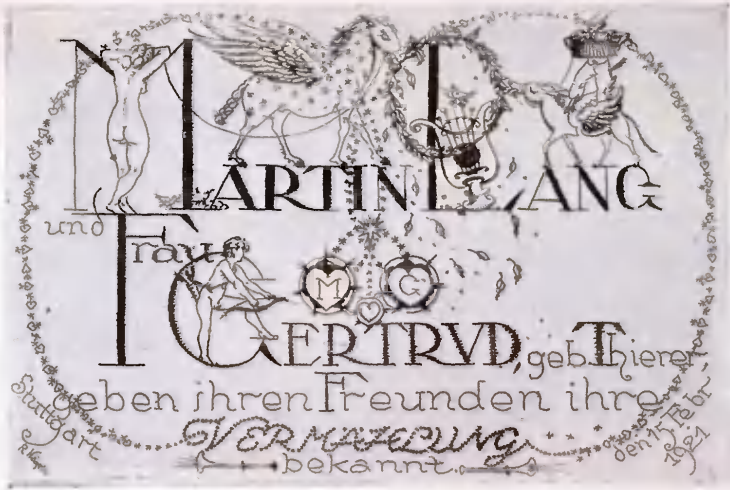 MARTIN LANG
und
Frau
M G
GERTRVD, geb. Thierer
geben ihren Freunden ihre
VERMAEHLUNG
bekannt.
Stuttgart
den 15. Febr.
1921